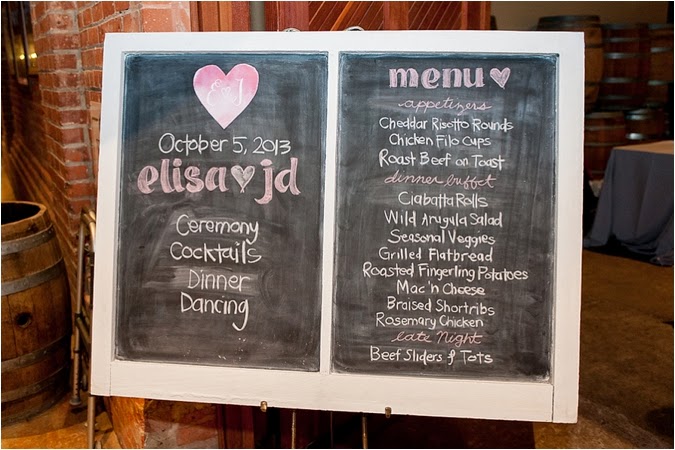 E & J
October 5, 2013
elisa jd
Ceremony
Cocktails
Dinner
Dancing
menu
appetizers
Cheddar Risotto Rounds
Chicken Filo Cups
Roast Beef on Toast
dinner buffet
Ciabatta Rolls
Wild Arugula Salad
Seasonal Veggies
Grilled Flatbread
Roasted Fingerling Potatoes
Mac 'n Cheese
Braised Shortribs
Rosemary Chicken
late Night
Beef Sliders & Tots